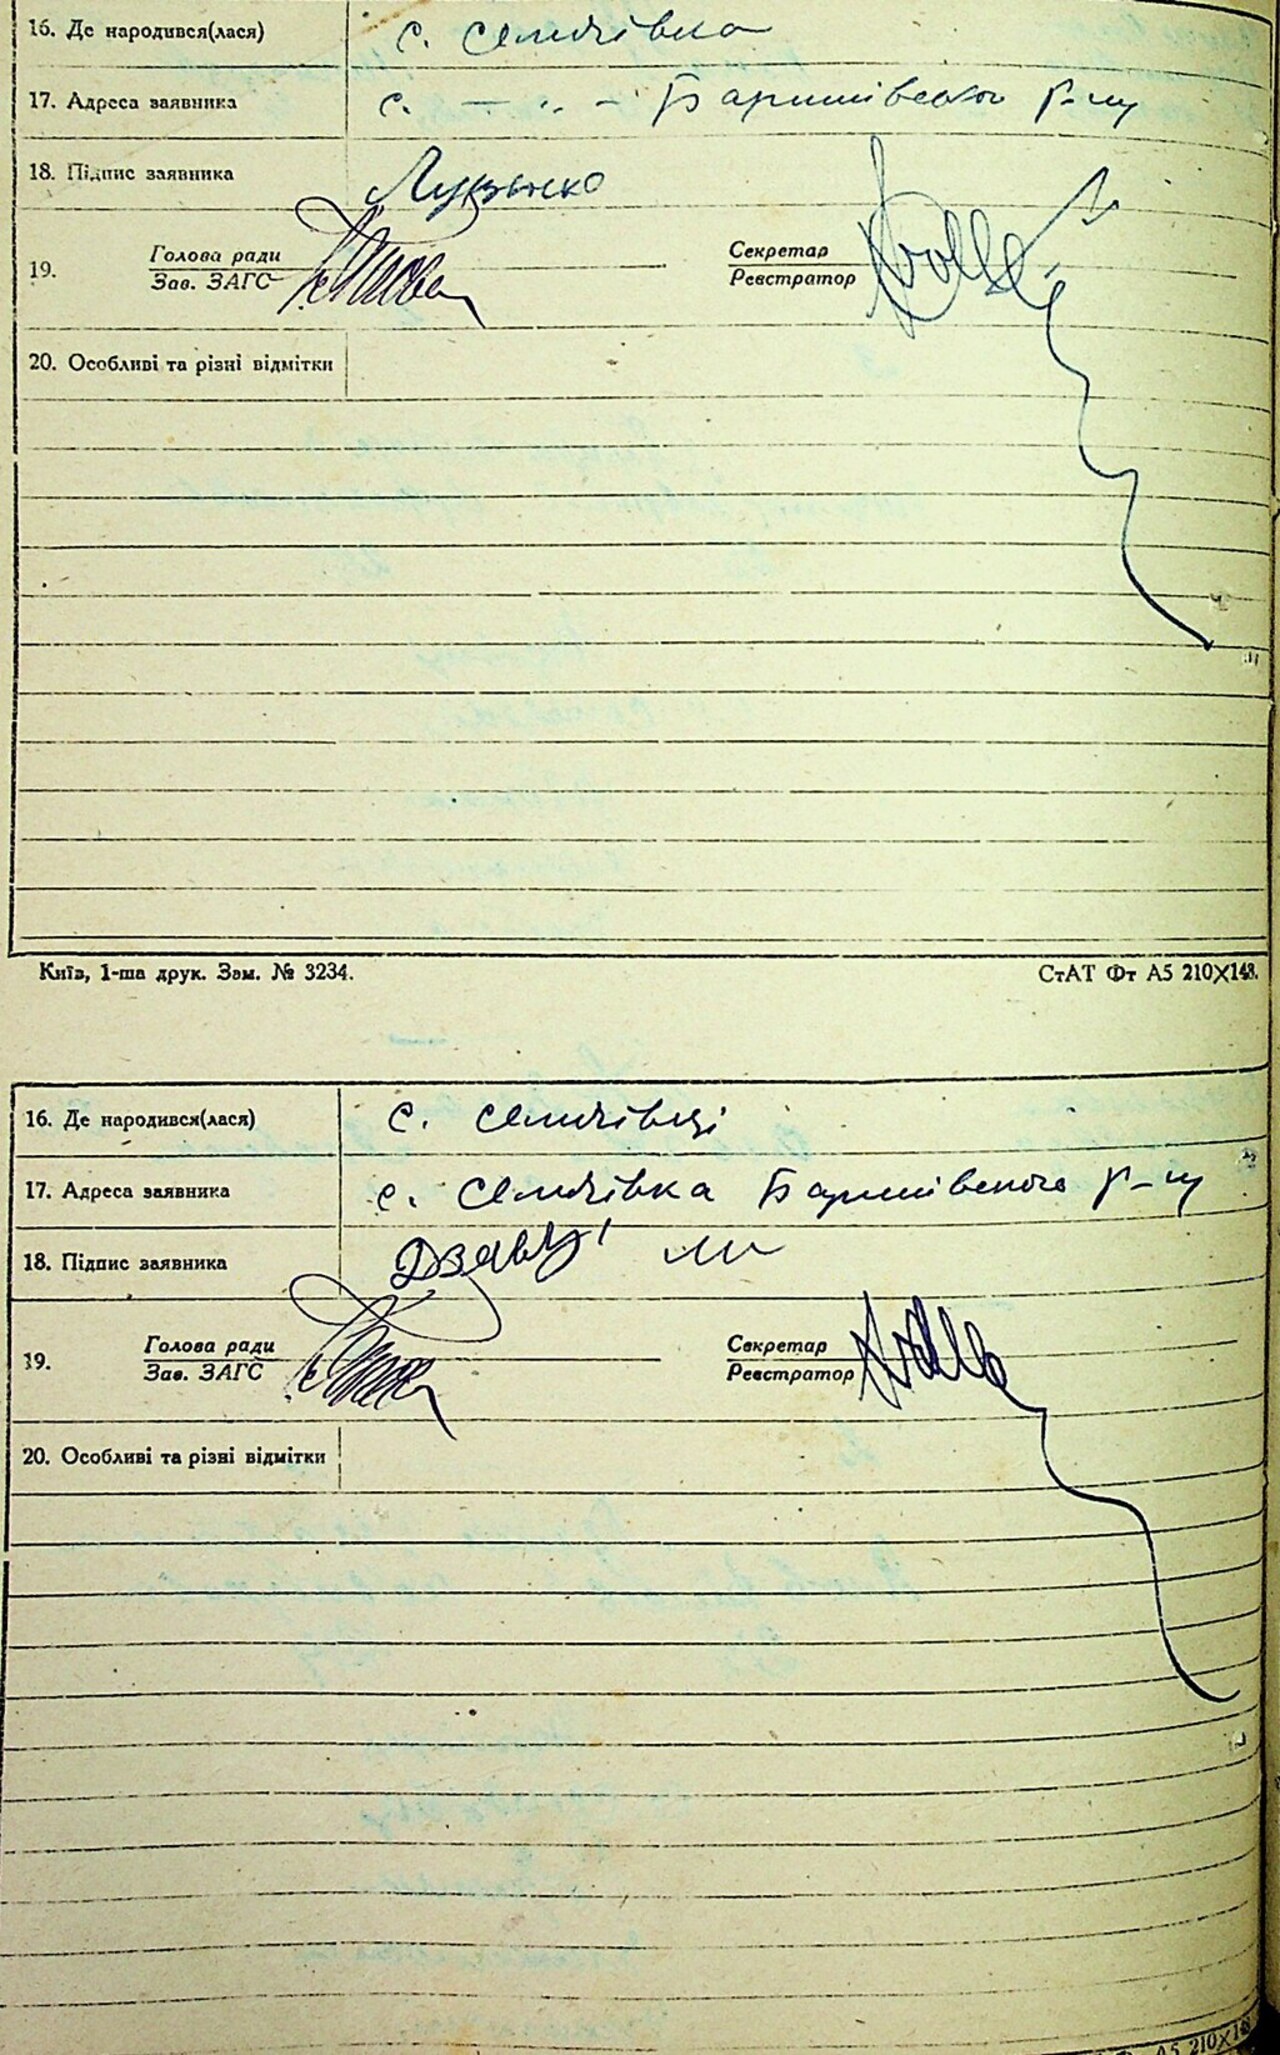 16. Де народився(лася) с. Селичівка
17. Адреса заявника с. — „ — Баришівського р-ну
18. Підпис заявника
19. Голова ради
Зав. ЗАГС
Секретар
Реєстратор
20. Особливі та різні відмітки
Київ, 1-ша друк. Зам. № 3234. СтАТ Фт А5 210×148.
16. Де народився(лася) с. Селичівці
17. Адреса заявника с. Селичівка Баришівського р-ну
18. Підпис заявника
19. Голова ради
Зав. ЗАГС
Секретар
Реєстратор
20. Особливі та різні відмітки
А5 210×148